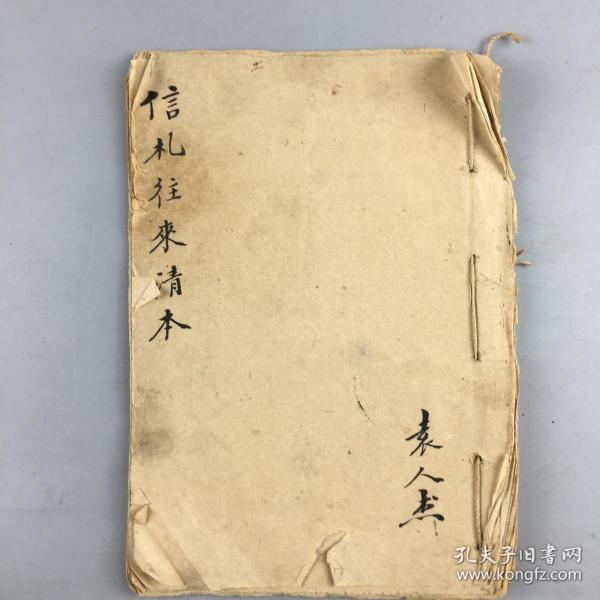 信札往來清本
袁人杰
孔夫子旧書网
www.kongfz.com